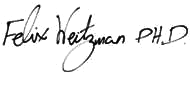 Felix Weitzman PH.D.